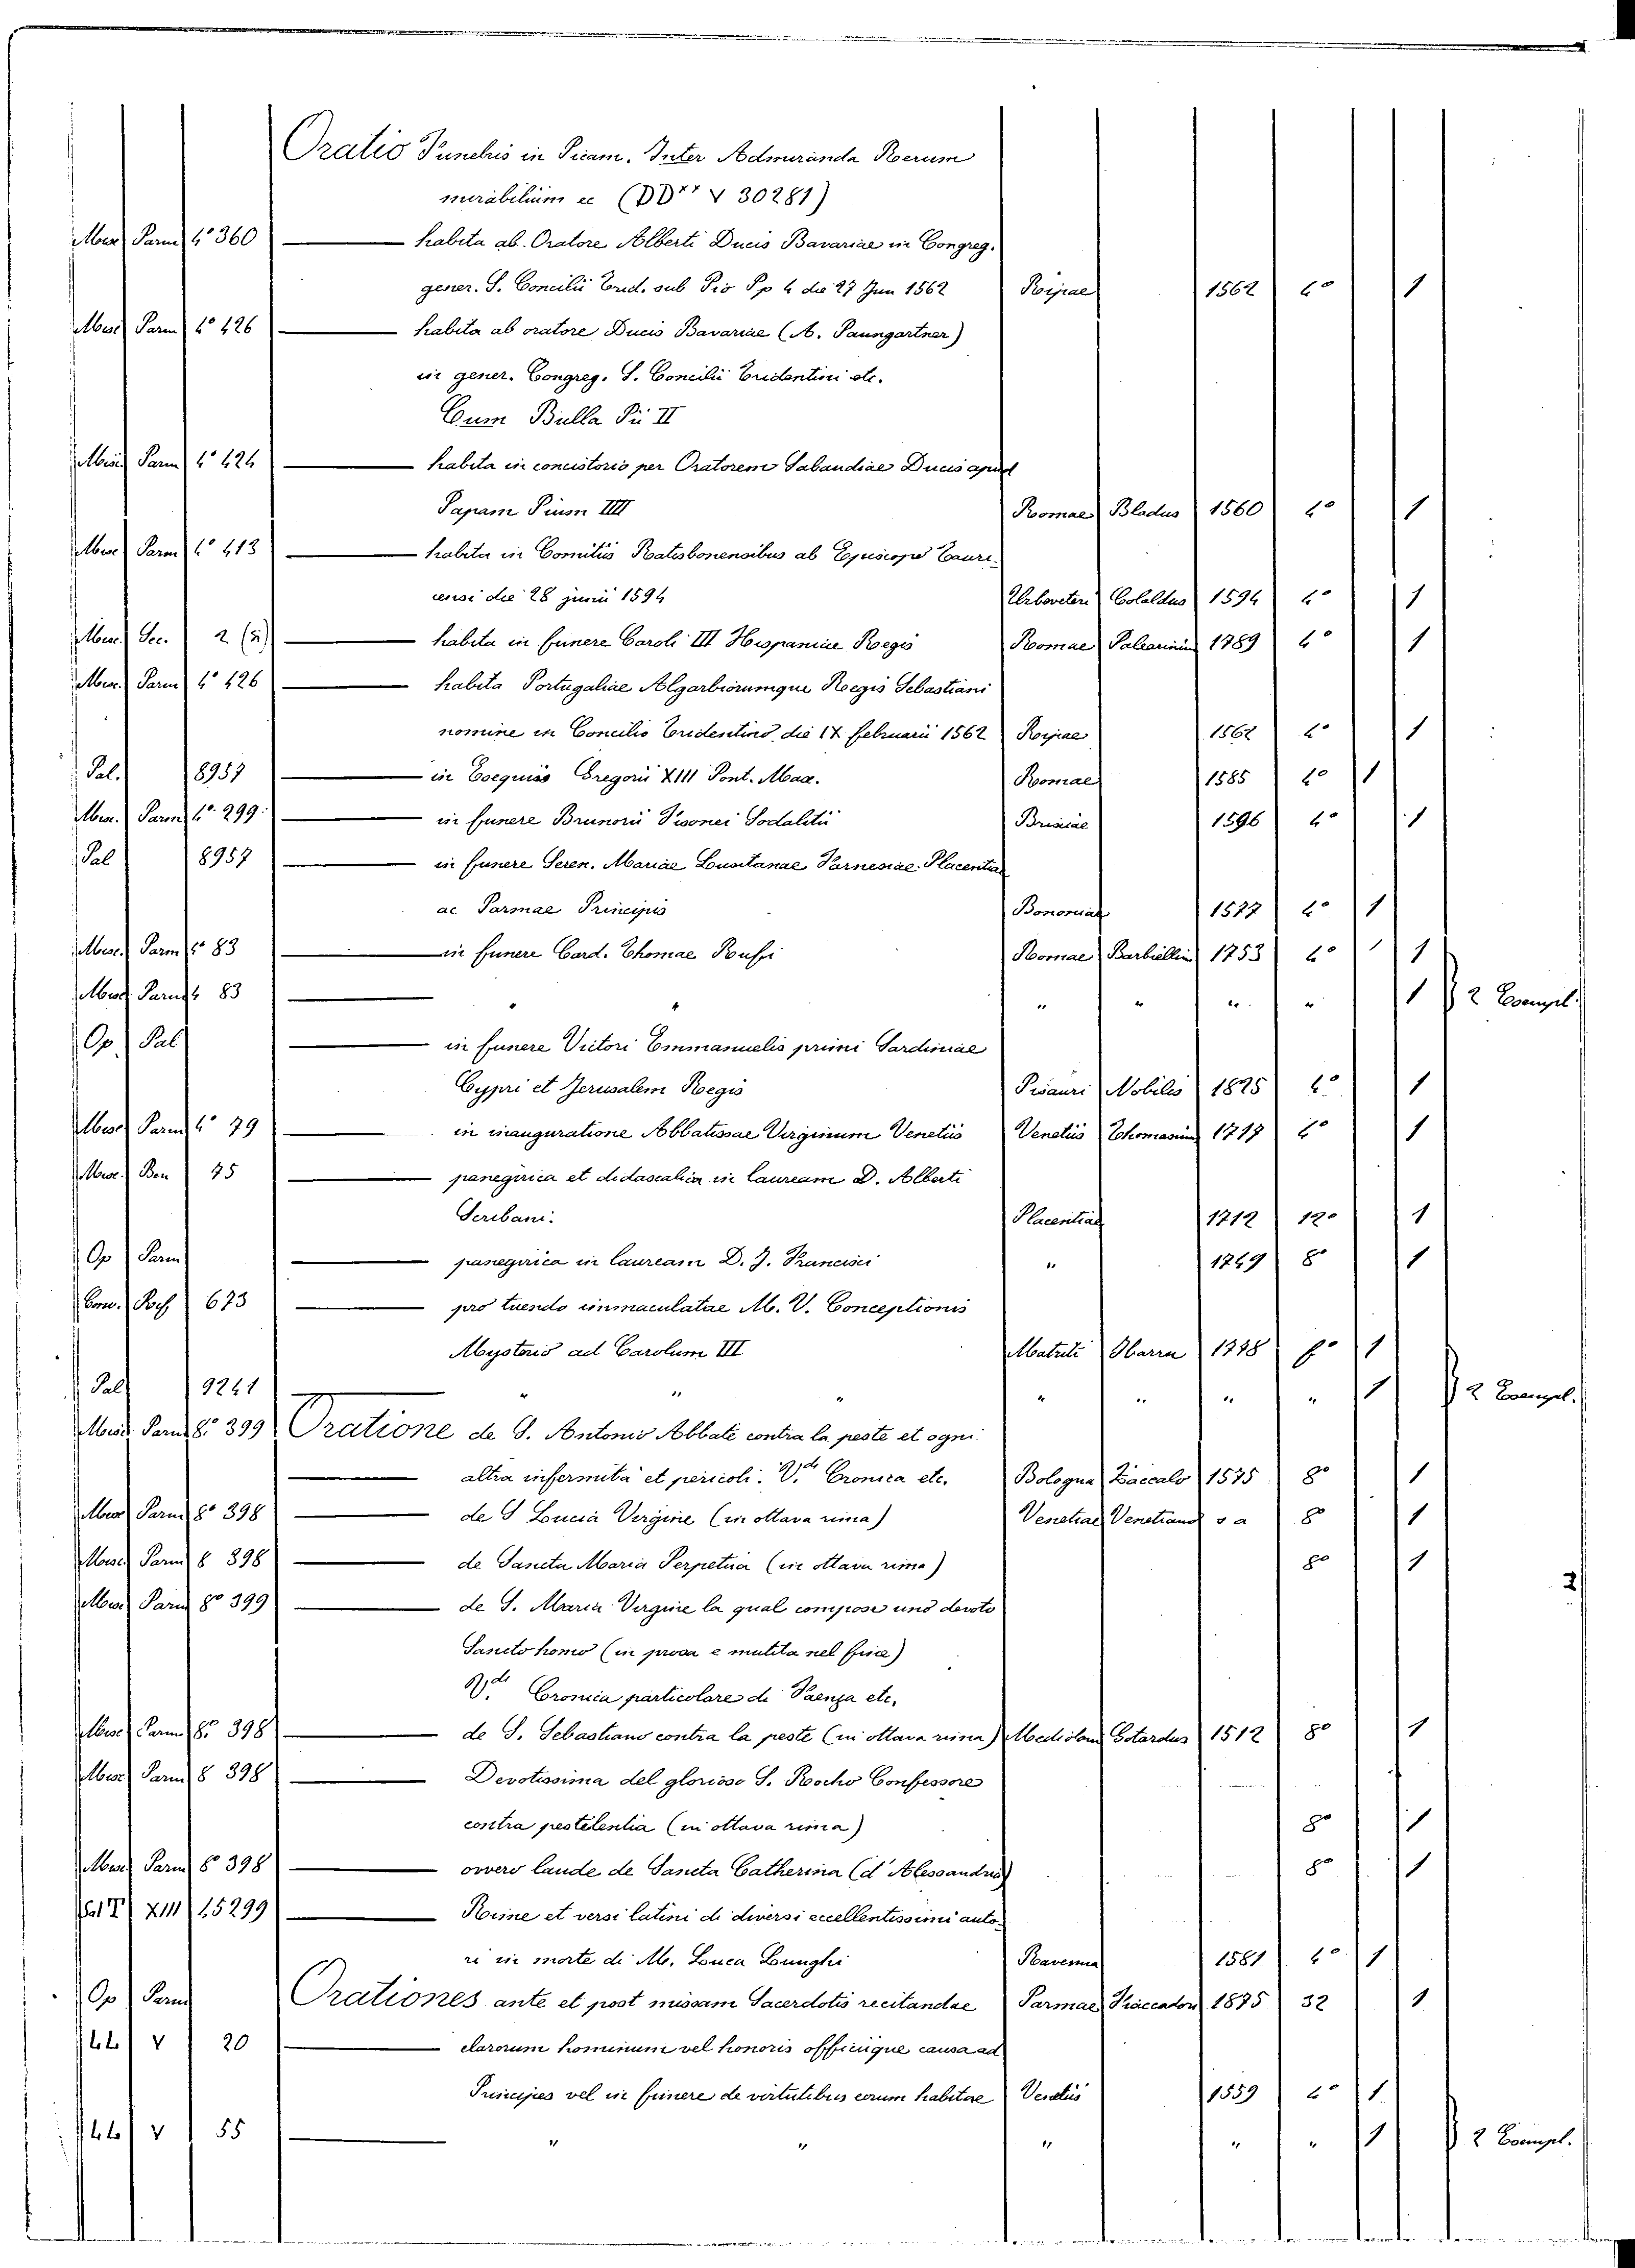 Oratio Funebris in Picam. Inter Admiranda Rerum
mirabilium ec (DD** V 30281)
Misc Parm 4° 360 habita ab. Oratore Alberti Ducis Bavariae in Congreg.
gener. S. Concilii Trid. sub Pio Pp 4 die 27 Jun 1562 Ripae 1562 4° 1
Misc Parm 4° 426 habita ab oratore Ducis Bavariae (A. Paungartner)
in gener. Congreg. S. Concilii Tridentini etc.
Cum Bulla Pii II
Misc Parm 4° 424 habita in concistorio per Oratorem Sabaudiae Ducis apud
Papam Pium IIII Romae Bladus 1560 4° 1
Misc Parm 4° 413 habita in Comitiis Ratisbonensibus ab Episcopo Tauri-
censi die 28 junii 1594 Urbeveteri Colaldus 1594 4° 1
Misc. Sec. 2 (2) habita in funere Caroli III Hispaniae Regis Romae Palearinius 1789 4° 1
Misc. Parm 4° 426 habita Portugaliae Algarbiorumque Regis Sebastiani
nomine in Concilio Tridentino die 17 februarii 1562 Ripae 1562 4° 1
Pal. 8957 in Exequiis Gregorii XIII Pont. Max. Romae 1585 4° 1
Misc. Parm 4° 299 in funere Brunorii Pisonei Sodalitii Brixiae 1596 4° 1
Pal 8957 in funere Seren. Mariae Lusitanae Farnesiae Placentiae
ac Parmae Principis Bononiae 1577 4° 1
Misc. Parm 4° 83 in funere Card. Thomae Ruffi Romae Barbiellini 1753 4° 1
Misc. Parm 4 83 " " " " " " 1 2 Exempl.
Op Pal in funere Victori Emmanuelis primi Sardiniae
Cypri et Jerusalem Regis Pisauri Nobilis 1825 4° 1
Misc Parm 4° 79 in inauguratione Abbatissae Virginum Venetiis Venetiis Thomasini 1717 4° 1
Misc. Ben 75 panegirica et didascalica in lauream D. Alberti
Scribani. Placentiae 1712 12° 1
Op Parm panegirica in lauream D. J. Francisci " 1749 8° 1
Conv. 673 pro tuendo inmaculatae M. V. Conceptionis
Mysterio ad Carolum III Matriti Ibarra 1778 f° 1
Pal 9241 " " " " " " " 1 2 Exempl.
Misc Parm 8° 399 Oratione de S. Antonio Abbate contra la peste et ogni
altra infermità et pericoli. V.di Cronica etc. Bologna Baccalo 1575 8° 1
Misc Parm 8° 398 de S Lucia Vergine (in ottava rima) Venetiae s a 8° 1
Misc. Parm 8 398 de Sancta Maria Perpetua (in ottava rima) 8° 1
Misc Parm 8° 399 de S. Maria Vergine la qual compose uno devoto
Sancto homo (in prosa e mutila nel fine)
V.di Cronica particolare di Faenza etc.
Misc Parm 8° 398 de S. Sebastiano contra la peste (in ottava rima) Mediolani Gotardus 1512 8° 1
Misc Parm 8 398 Devotissima del glorioso S. Rocho Confessore
contra pestelentia (in ottava rima) 8° 1
Misc Parm 8° 398 ovvero laude de Sancta Catherina (d'Alessandria) 8° 1
XIII 15299 Rime et versi latini di diversi eccellentissimi auto-
ri in morte di M. Luca Lunghi Ravenna 1581 4° 1
Op Parm Orationes ante et post missam Sacerdotis recitandae Parmae Fiaccadori 1875 32 1
V 20 clarorum hominum vel honoris officiique causa ad
Principes vel in funere de virtutibus eorum habitae Venetiis 1559 4° 1
V 55 " " " " " 1 2 Exempl.
2